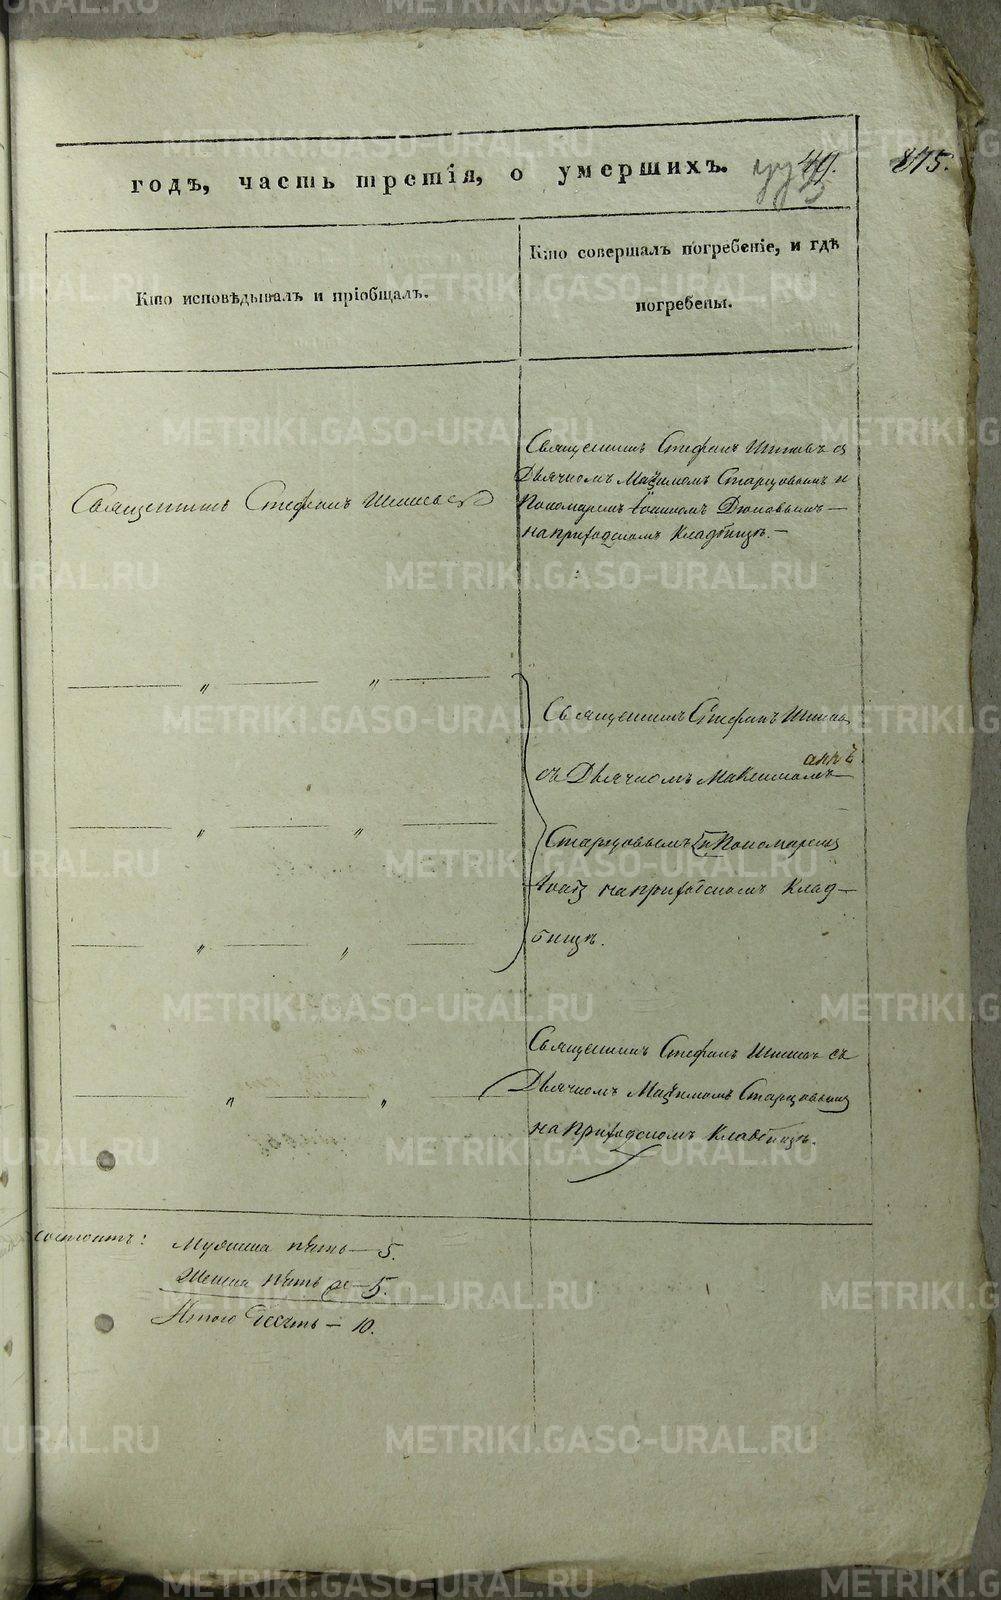 METRIKI.GASO-URAL.RU
годъ, часть третія, о умершихъ.
49.
875.
Кто исповѣдывалъ и пріобщалъ.
Кто совершалъ погребеніе, и гдѣ
погребены.
Священникъ Стефанъ
Священникъ Стефанъ съ
Дьячкомъ Маѯимомъ Старцовымъ и
Пономаремъ Іоанномъ —
на приходскомъ кладбищѣ. —
Священникъ Стефанъ
съ Дьячкомъ Максимомъ
Старцовымъ и Пономаремъ
на приходскомъ клад—
бищѣ.
Священникъ Стефанъ съ
Дьячкомъ Маѯимомъ Старцовымъ
на приходскомъ кладбищѣ.
состоитъ:
Мужеска пять — 5.
Женска пять — 5.
Итого десять — 10.